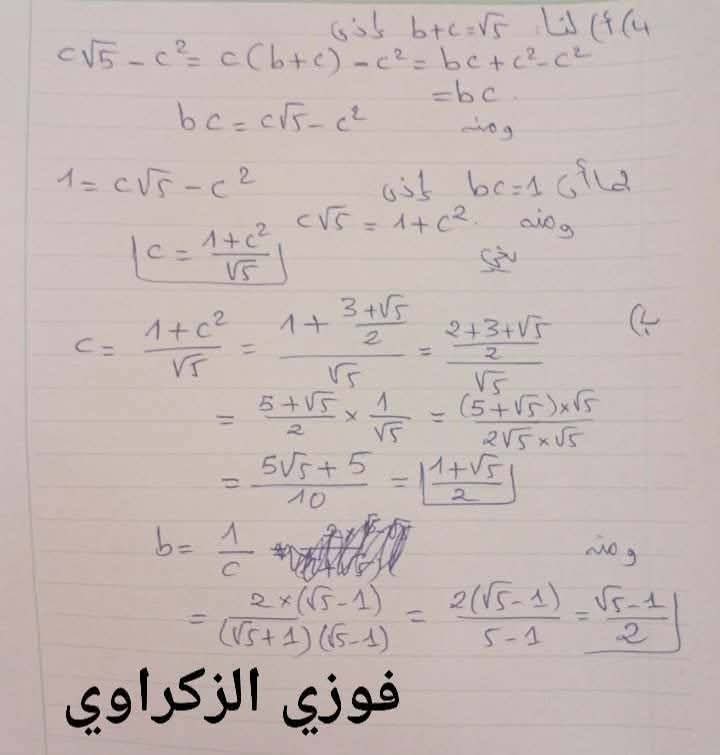 4) أ) لنا b+c=√5 إذن
c√5 - c² = c(b+c) - c² = bc + c² - c²
= bc.
ومنه bc = c√5 - c²
بما أن bc = 1 إذن 1 = c√5 - c²
ومنه c√5 = 1 + c².
يعني c = (1+c²)/√5
ب) c = (1+c²)/√5 = (1 + (3+√5)/2)/√5 = ((2+3+√5)/2)/√5
= (5+√5)/2 × 1/√5 = ((5+√5)×√5)/(2√5×√5)
= (5√5+5)/10 = (1+√5)/2
ومنه b = 1/c
= (2×(√5-1))/((√5+1)(√5-1)) = (2(√5-1))/(5-1) = (√5-1)/2
فوزي الزكراوي